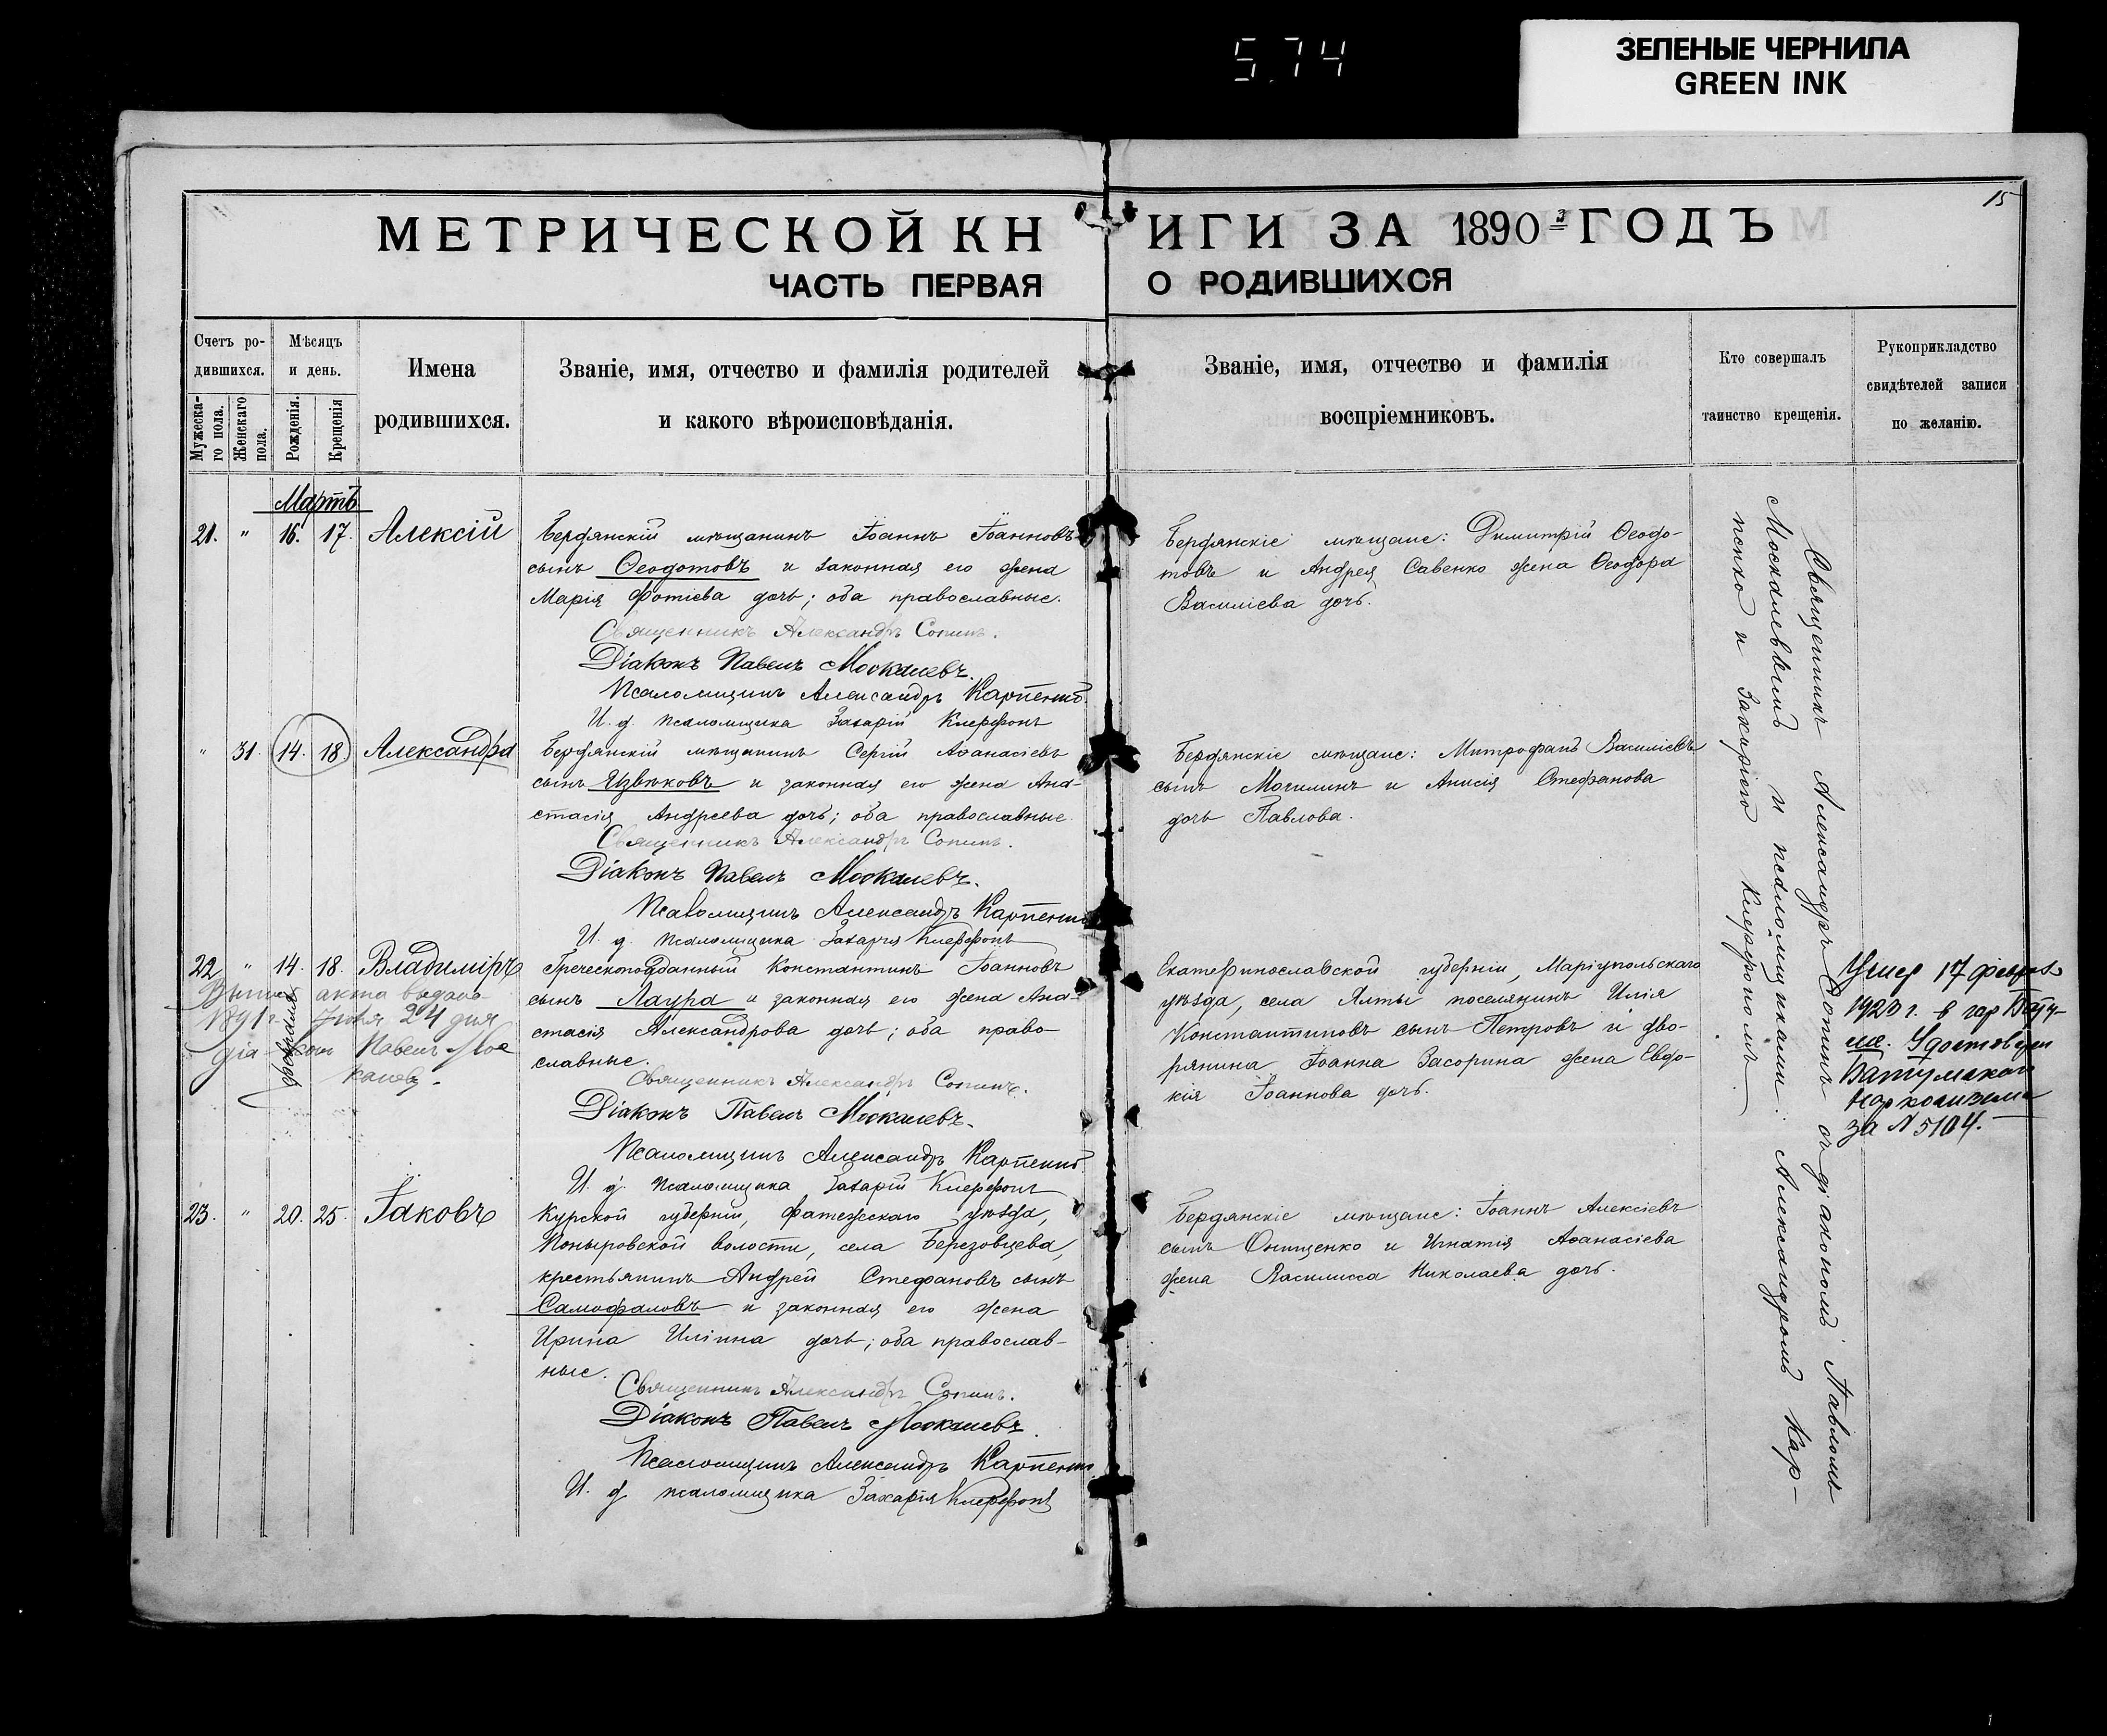 5.74
ЗЕЛЕНЫЕ ЧЕРНИЛА
GREEN INK
15
МЕТРИЧЕСКОЙ КНИГИ ЗА 1890й ГОДЪ
ЧАСТЬ ПЕРВАЯ О РОДИВШИХСЯ
Счетъ ро-
дившихся.
Мужеска-
го пола.
Женскаго
пола.
Мѣсяцъ
и день.
Рожденія.
Крещенія
Имена
родившихся.
Званіе, имя, отчество и фамилія родителей
и какого вѣроисповѣданія.
Званіе, имя, отчество и фамилія
воспріемниковъ.
Кто совершалъ
таинство крещенія.
Рукоприкладство
свидѣтелей записи
по желанію.
Мартъ
21. " 16. 17. Алексій
Бердянскій мѣщанинъ Іоаннъ Іоанновъ
сынъ Ѳеодотовъ и законная его жена
Марія Фотіева дочь; оба православные.
Священникъ Александръ Сопинъ.
Діаконъ Павелъ Москалевъ.
Псаломщикъ Александръ Карпенко.
И. д. псаломщика Захарій Клерфонъ
Бердянскіе мѣщане: Димитрій Ѳеодо-
товъ и Андрея Савенко жена Ѳеодора
Василіева дочь.
" 31. 14. 18. Александра
Бердянскій мѣщанинъ Сергій Аѳанасіевъ
сынъ Язвѣковъ и законная его жена Ана-
стасія Андреева дочь; оба православные
Священникъ Александръ Сопинъ.
Діаконъ Павелъ Москалевъ.
Псаломщикъ Александръ Карпенко
И. д. псаломщика Захарія Клерфонъ
Бердянскіе мѣщане: Митрофанъ Василіевъ
сынъ Могилинъ и Анисія Стефанова
дочь Павлова.
22 " 14. 18. Владиміръ
акта выдана
1891г. 24 дня
діаконъ Павелъ Мос
калевъ.
Греческоподданный Константинъ Іоанновъ
сынъ Лаура и законная его жена Ана-
стасія Александрова дочь; оба право-
славные.
Священникъ Александръ Сопинъ.
Діаконъ Павелъ Москалевъ.
Псаломщикъ Александръ Карпенко.
И. д. псаломщика Захарій Клерфонъ
Екатеринославской губерніи, Маріупольскаго
уѣзда, села Ялты поселянинъ Илія
Константиновъ сынъ Петровъ и дво-
рянина Іоанна Засорина жена Евдо-
кія Іоаннова дочь.
Умер 17 февраля
1923 г. в гор Бату-
ме.
за N 5104.
23. " 20. 25. Іаковъ
Курской губерніи, Фатежскаго уѣзда,
Поныровской волости, села Березовцева,
крестьянинъ Андрей Стефановъ сынъ
Самофаловъ и законная его жена
Ирина Иліина дочь; оба православ-
ные.
Священникъ Александръ Сопинъ.
Діаконъ Павелъ Москалевъ.
Псаломщикъ Александръ Карпенко
И. д псаломщика Захарія Клерфонъ
Бердянскіе мѣщане: Іоаннъ Алексіевъ
сынъ Онищенко и Игнатія Аѳанасіева
жена Василисса Николаева дочь.
Священникъ Александръ Сопинъ съ діакономъ Павломъ
Москалевымъ и псаломщиками: Александромъ Кар-
пенко и Захаріею Клерфономъ